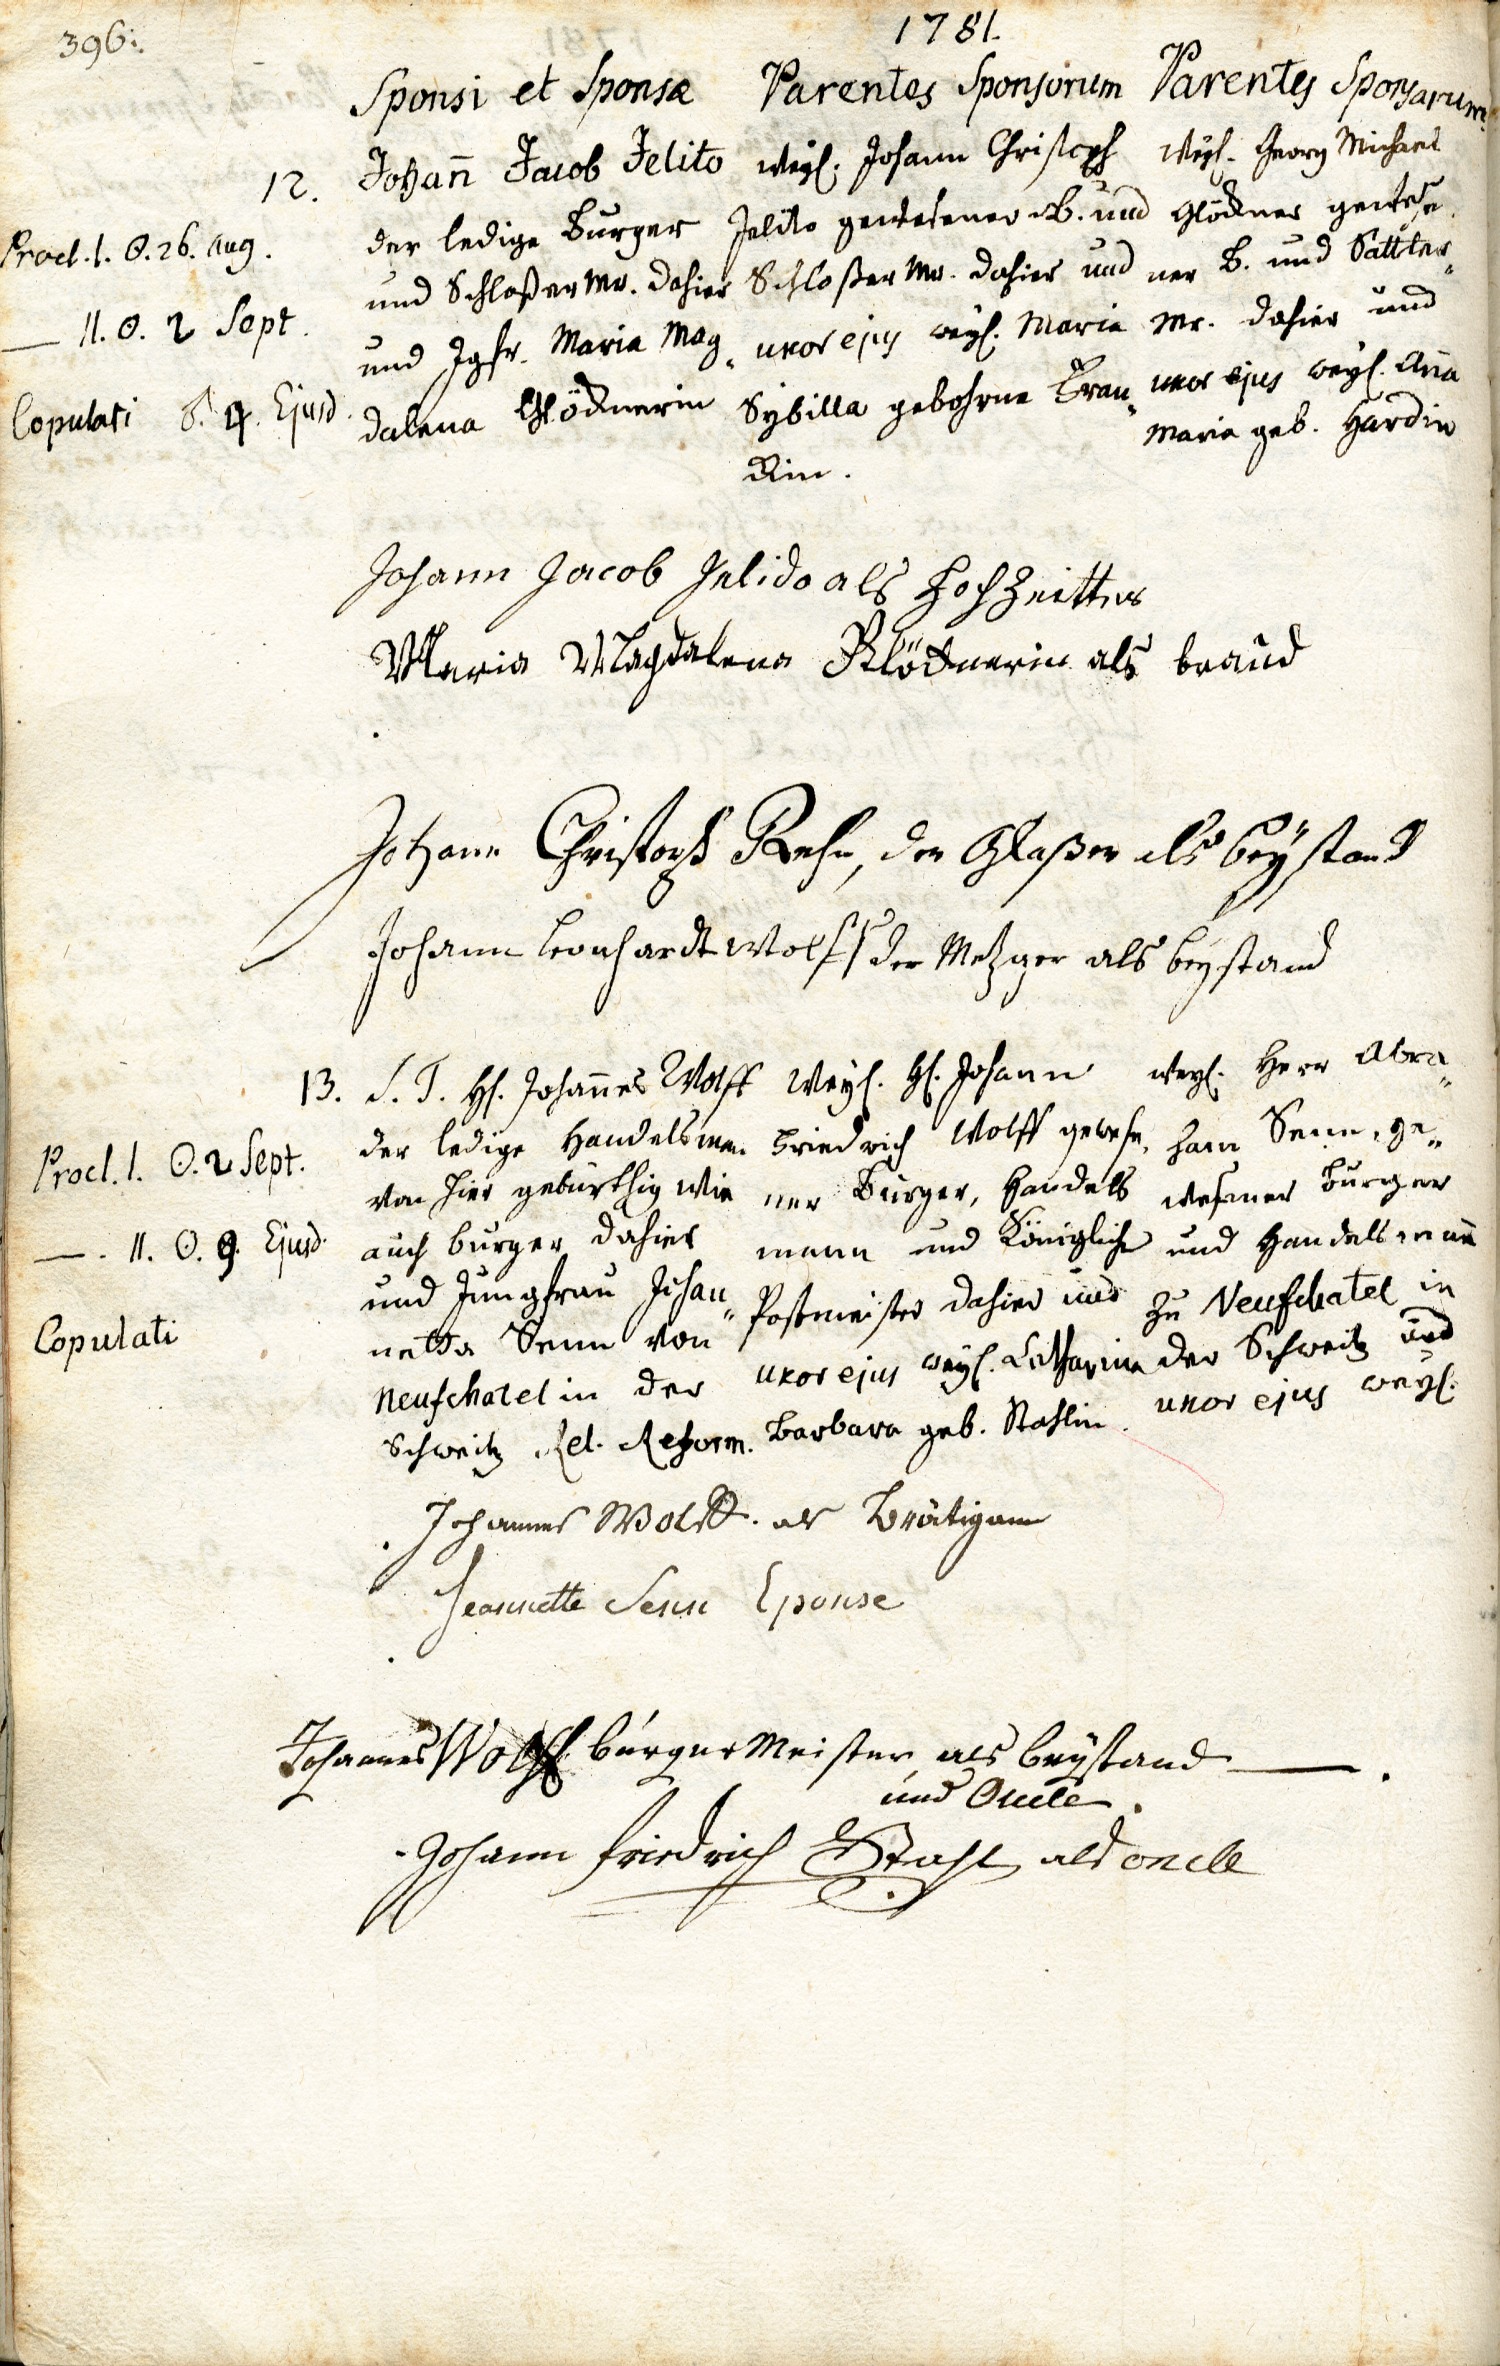 396.
1781.
Sponsi et Sponsæ
Parentes Sponsorum
Parentes Sponsarum
12.
Procl. I. ☉. 26. Aug.
— II. ☉. 2 Sept.
Copulati ♂. 4. Ejusd.
Johañ Jacob Jelito
der ledige Burger
und Schloßer Mr. dahier
und Jgfr. Maria Mag„
dalena Glöcknerin
weyl. Johann Christoph
Jelito gewesener B. und
Schloßer Mr. dahier und
uxor ejus weyl. Maria
Sybilla gebohrne Fran„
kin.
weyl. Georg Michael
Glöckner gewese„
ner B. und Sattler„
Mr. dahier und
uxor ejus weyl. Aña
Maria geb. Hardin
Johann Jacob Jelido als Hochzeitter
Maria Magdalena Klöcknerin als braud
Johann Christoph Rehn, der Glaßer als beystand
Johann Leonhardt Wolff der Metzger als beystand
13.
Procl. I. ☉. 2 Sept.
— . II. ☉. 9. Ejusd.
Copulati
S. T. H. Johañes Wolff
der ledige Handelsman
von hier gebürthig wie
auch burger dahier
und Jungfrau Johan„
netta Senn von
Neufchatel in der
Schweitz Rel. Reform.
Weyl. H. Johann
Friedrich Wolff gewese„
ner Burger, Handels
mann und Königlicher
Postmeister dahier und
uxor ejus weyl. Catharina
Barbara geb. Stahlin.
weyl. Herr Abra„
ham Senn, ge„
wesener Burger
und Handelsmañ
zu Neufchatel in
der Schweitz und
uxor ejus weyl.
Johannes Wolff. als Bräutigam
Jeannette Senn Epouse
Johannes Wolff burger Meister als beystand
und Oncle.
Johann Friedrich Stahl als oncle